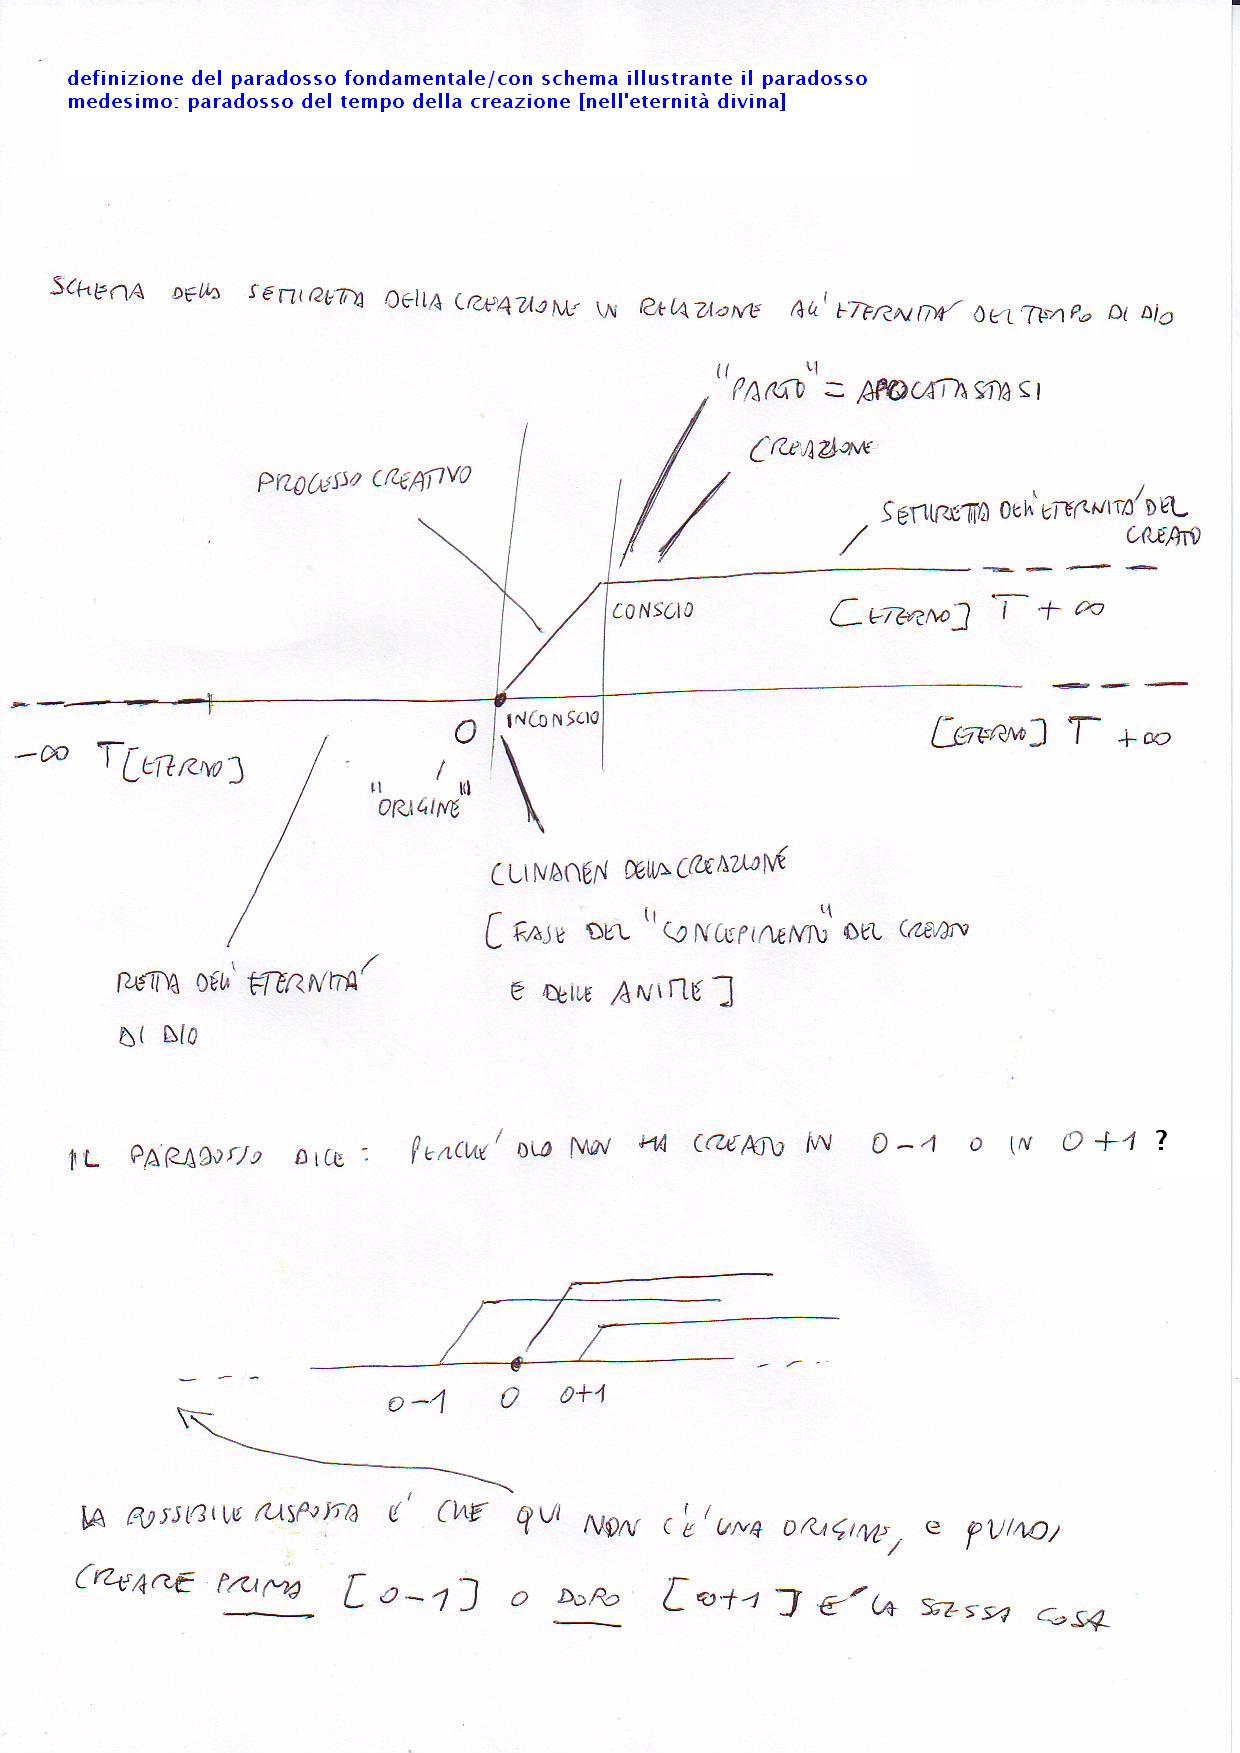 definizione del paradosso fondamentale/con schema illustrante il paradosso
medesimo: paradosso del tempo della creazione [nell'eternità divina]
SCHEMA DELLA SEMIRETTA DELLA CREAZIONE IN RELAZIONE ALL'ETERNITA' DEL TEMPO DI DIO
"PARTO" = APOCATASTASI
CREAZIONE
PROCESSO CREATIVO
SEMIRETTA DELL'ETERNITA' DEL
CREATO
CONSCIO
[ETERNO] T + ∞
O INCONSCIO
-∞ T[ETERNO]
[ETERNO] T +∞
"ORIGINE"
CLINAMEN DELLA CREAZIONE
[FASE DEL "CONCEPIMENTO" DEL CREATO
E DELLE ANIME]
RETTA DELL'ETERNITA'
DI DIO
IL PARADOSSO DICE: PERCHE' DIO NON HA CREATO IN 0-1 O IN 0+1?
0-1 0 0+1
LA POSSIBILE RISPOSTA E' CHE QUI NON C'E' UNA ORIGINE, E QUINDI
CREARE PRIMA [0-1] O DOPO [0+1] E' LA STESSA COSA